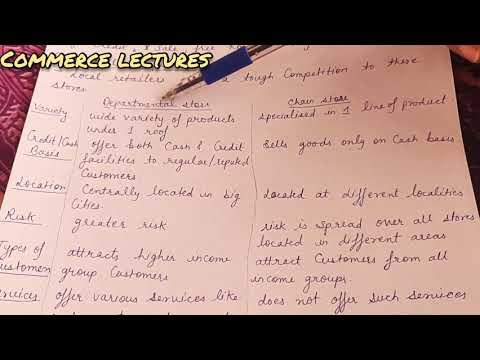 COMMERCE LECTURES
Local retailers tough Competition to these
stores
Departmental store
Chain store
Variety
wide variety of products
under 1 roof
specialised in 1 line of product
Credit/Cash
Basis
offer both Cash & Credit
facilities to regular/reputed
Customers
Sells goods only on Cash basis
Location
Centrally located in big
Cities.
Located at different localities
Risk
greater risk
risk is spread over all stores
located in different areas
Types of
Customers
attracts higher income
group Customers
attract Customers from all
income groups.
Services
offer various services like
does not offer such services